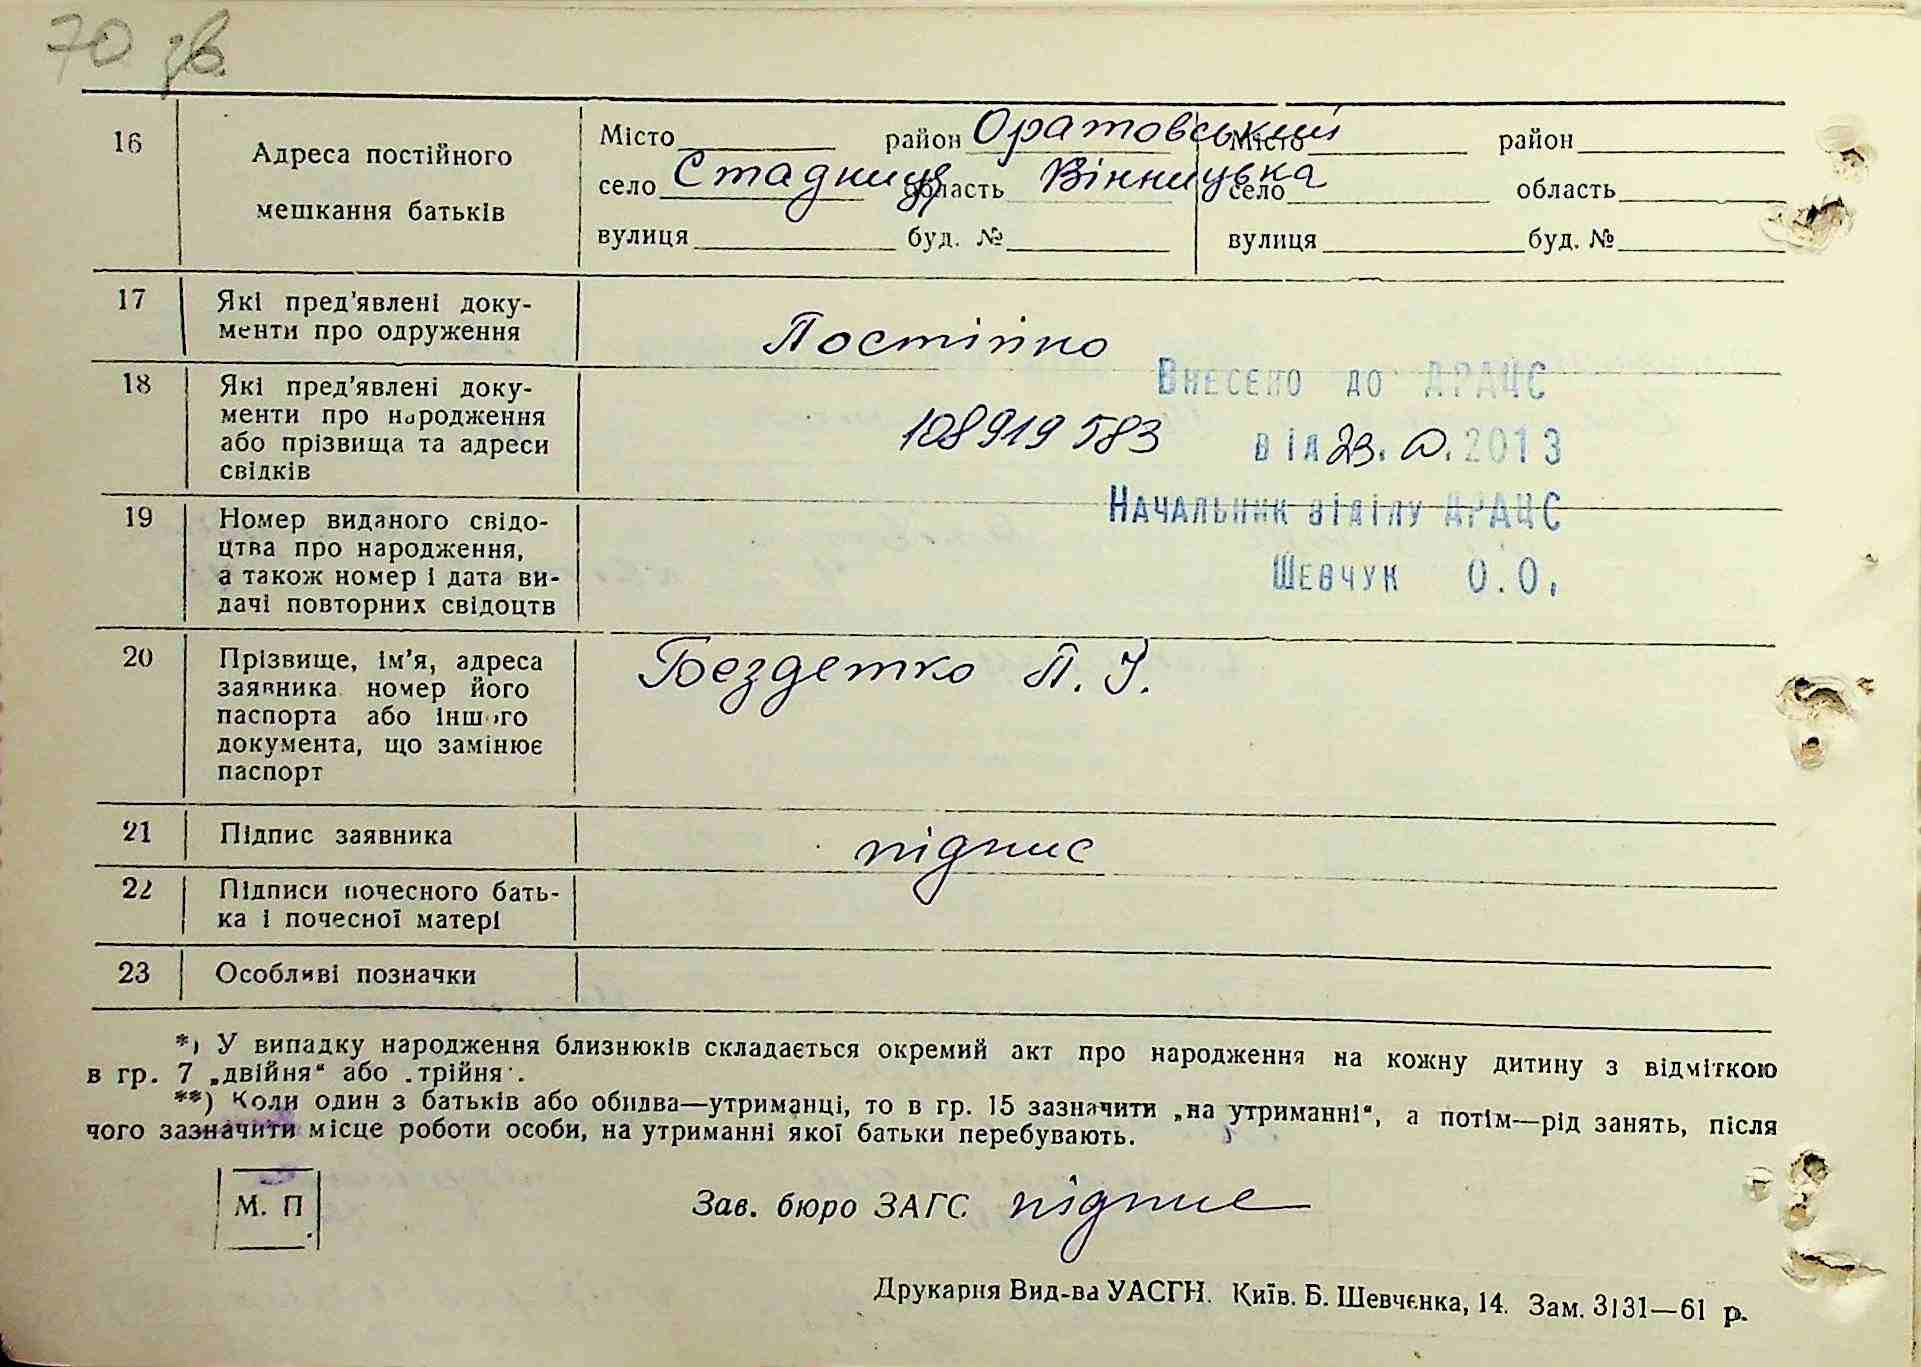 70 зв.
16 Адреса постійного мешкання батьків
Місто район Оратовський Місто район
село Стадниця область Вінницька село область
вулиця буд. № вулиця буд. №
17 Які пред'явлені доку-
менти про одруження
Постійно
18 Які пред'явлені доку-
менти про народження
або прізвища та адреси
свідків
108919583
Внесено до ДРАЦС
від 23. 2013
Начальник відділу ДРАЦС
Шевчук О.О.
19 Номер виданого свідо-
цтва про народження,
а також номер і дата ви-
дачі повторних свідоцтв
20 Прізвище, ім'я, адреса
заявника номер його
паспорта або іншого
документа, що замінює
паспорт
Бездетко П. І.
21 Підпис заявника підпис
22 Підписи почесного бать-
ка і почесної матері
23 Особливі позначки
*) У випадку народження близнюків складається окремий акт про народження на кожну дитину з відміткою
в гр. 7 „двійня“ або „трійня“.
**) Коли один з батьків або обидва—утриманці, то в гр. 15 зазначити „на утриманні“, а потім—рід занять, після
чого зазначити місце роботи особи, на утриманні якої батьки перебувають.
М. П.
Зав. бюро ЗАГС підпис
Друкарня Вид-ва УАСГН. Київ. Б. Шевченка, 14. Зам. 3131—61 р.